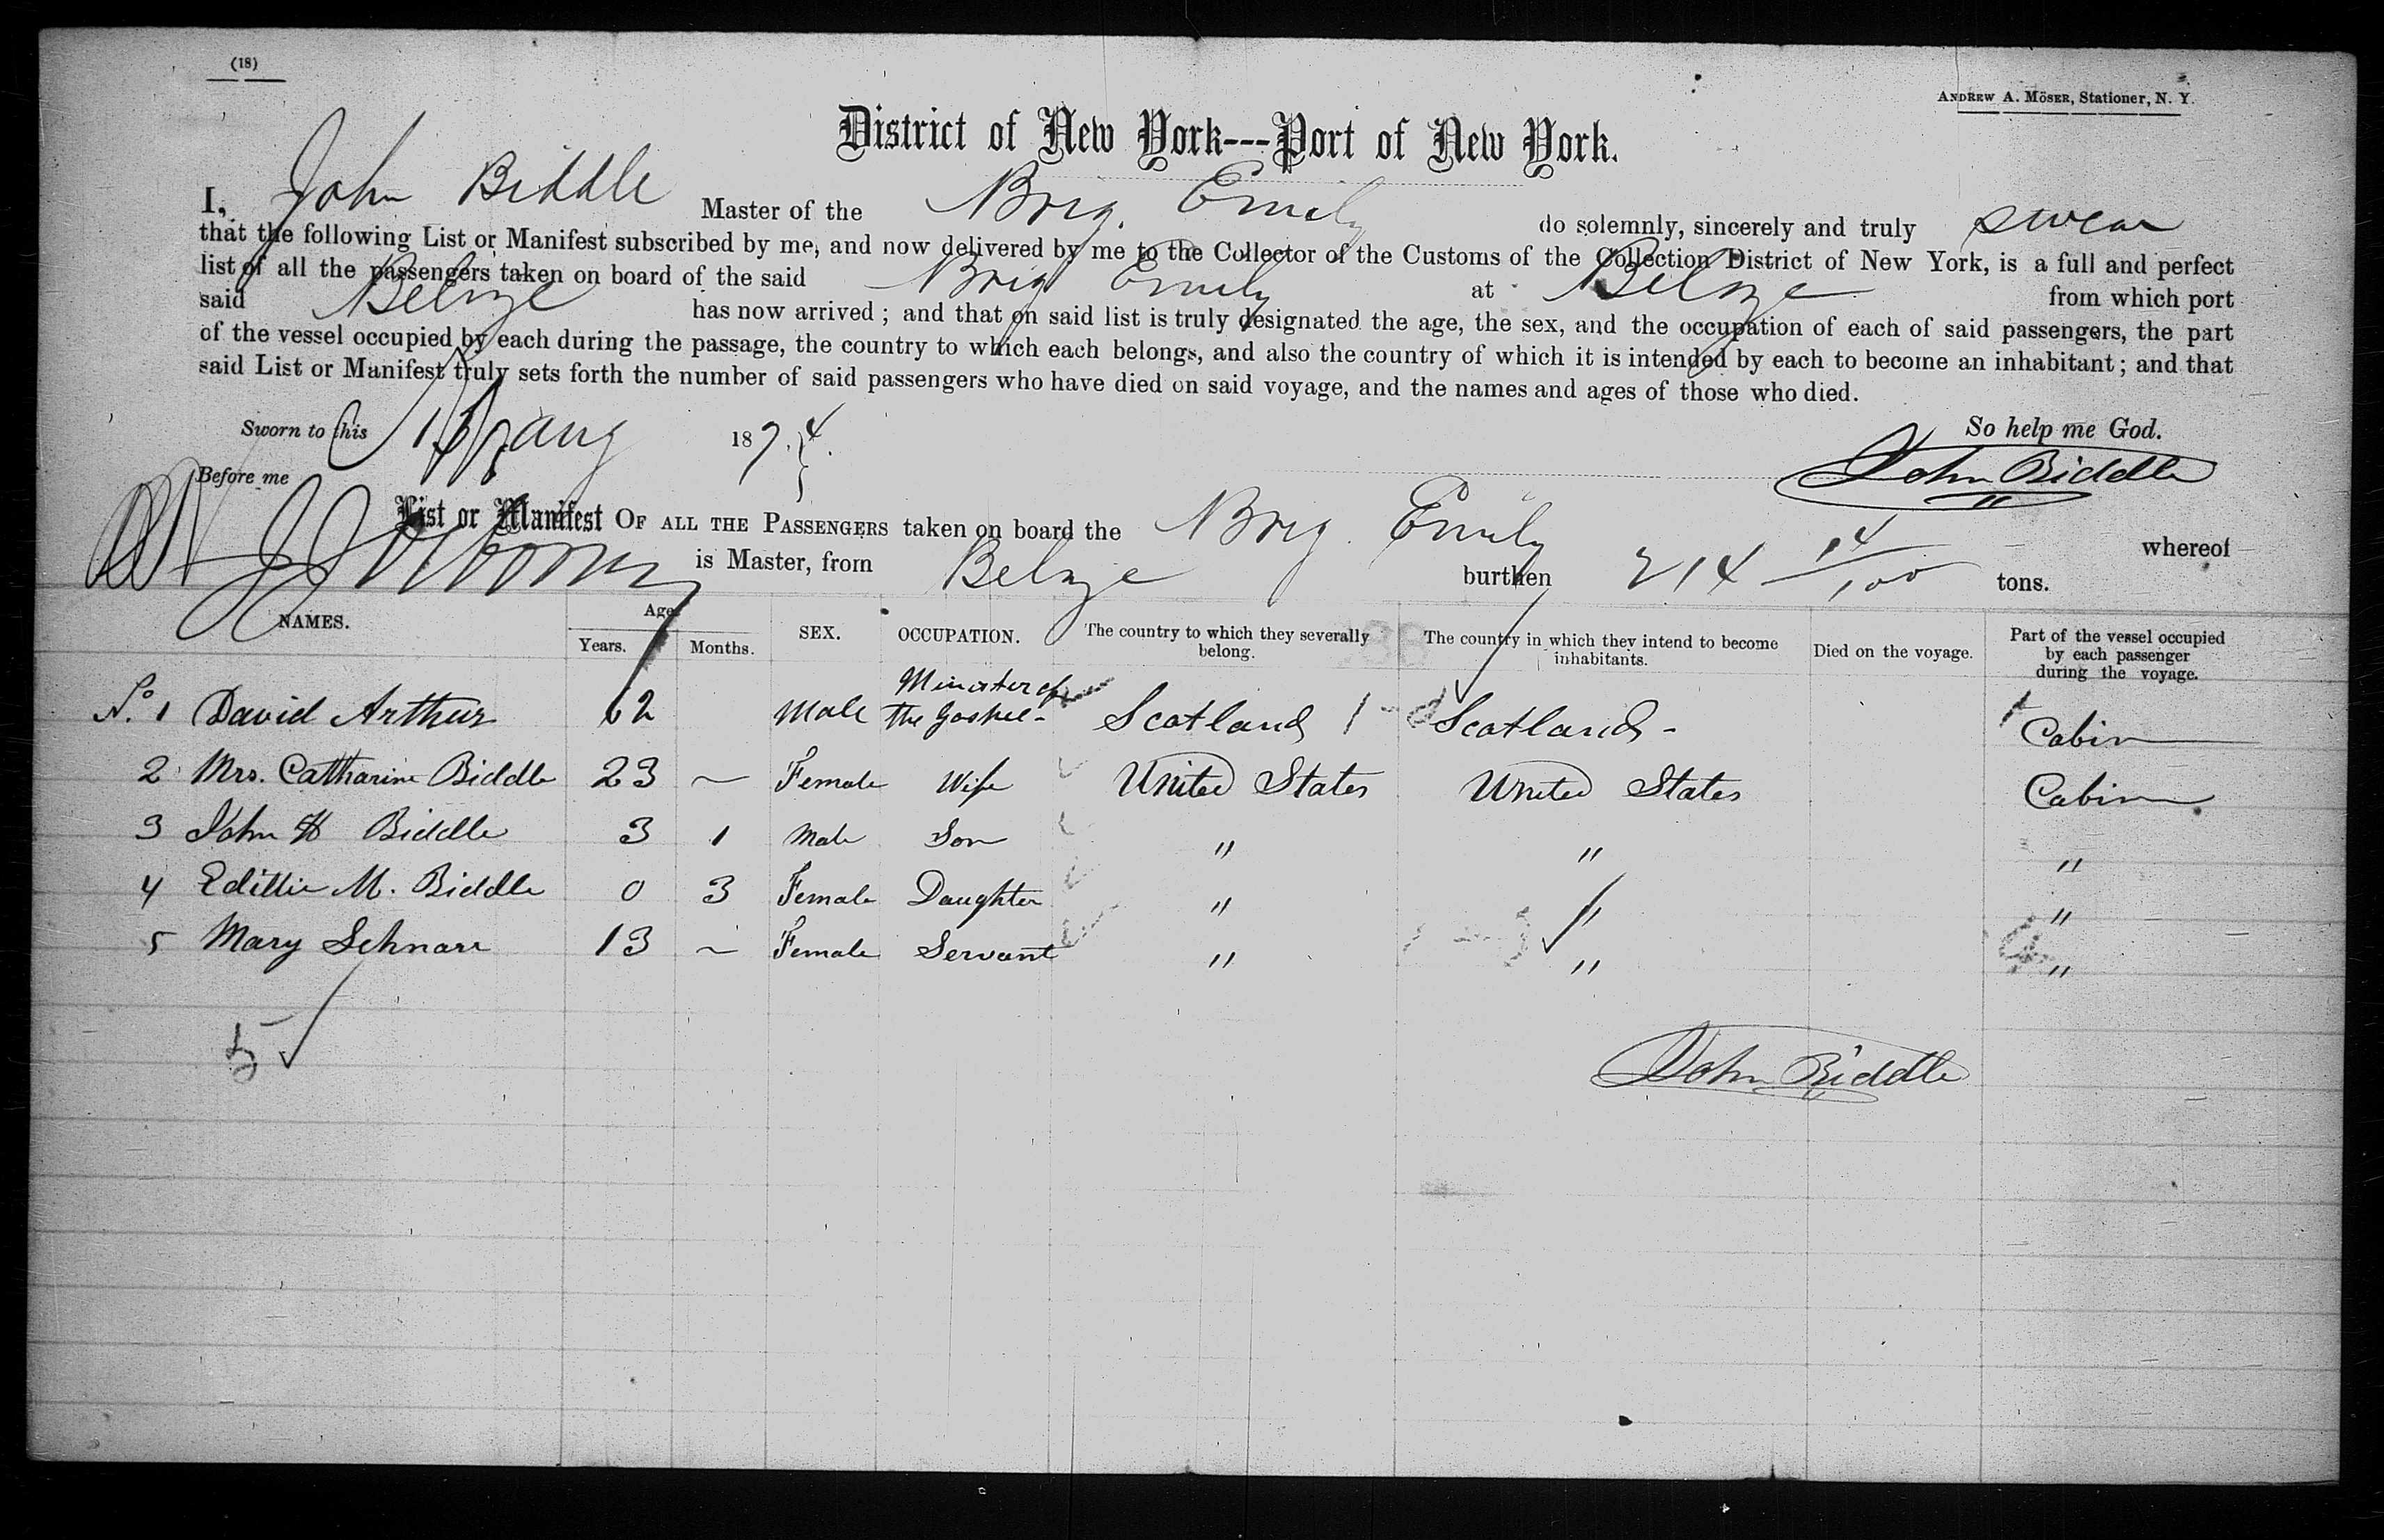 (18)
ANDREW A. MÖSER, Stationer, N. Y.
District of New York---Port of New York.
I, John Biddle Master of the Brig. Emily do solemnly, sincerely and truly swear
that the following List or Manifest subscribed by me, and now delivered by me to the Collector of the Customs of the Collection District of New York, is a full and perfect
list of all the passengers taken on board of the said Brig Emily at Belize from which port
said Belize has now arrived; and that on said list is truly designated the age, the sex, and the occupation of each of said passengers, the part
of the vessel occupied by each during the passage, the country to which each belongs, and also the country of which it is intended by each to become an inhabitant; and that
said List or Manifest truly sets forth the number of said passengers who have died on said voyage, and the names and ages of those who died.
Sworn to this Aug 187.4. So help me God.
Before me John Biddle
List or Manifest OF ALL THE PASSENGERS taken on board the Brig. Emily whereof
is Master, from Belize burthen 214 14/100 tons.
NAMES. Age. Years. Months. SEX. OCCUPATION. The country to which they severally belong. The country in which they intend to become inhabitants. Died on the voyage. Part of the vessel occupied by each passenger during the voyage.
No. 1 David Arthur 62 Male Minister of the Gospel- Scotland 1 Scotland - Cabin
2 Mrs. Catharine Biddle 23 ~ Female Wife United States United States Cabin
3 John H Biddle 3 1 Male Son " " "
4 Edithe M. Biddle 0 3 Female Daughter " " "
5 Mary Schnarr 13 ~ Female Servant " " "
5 ✓
John Biddle